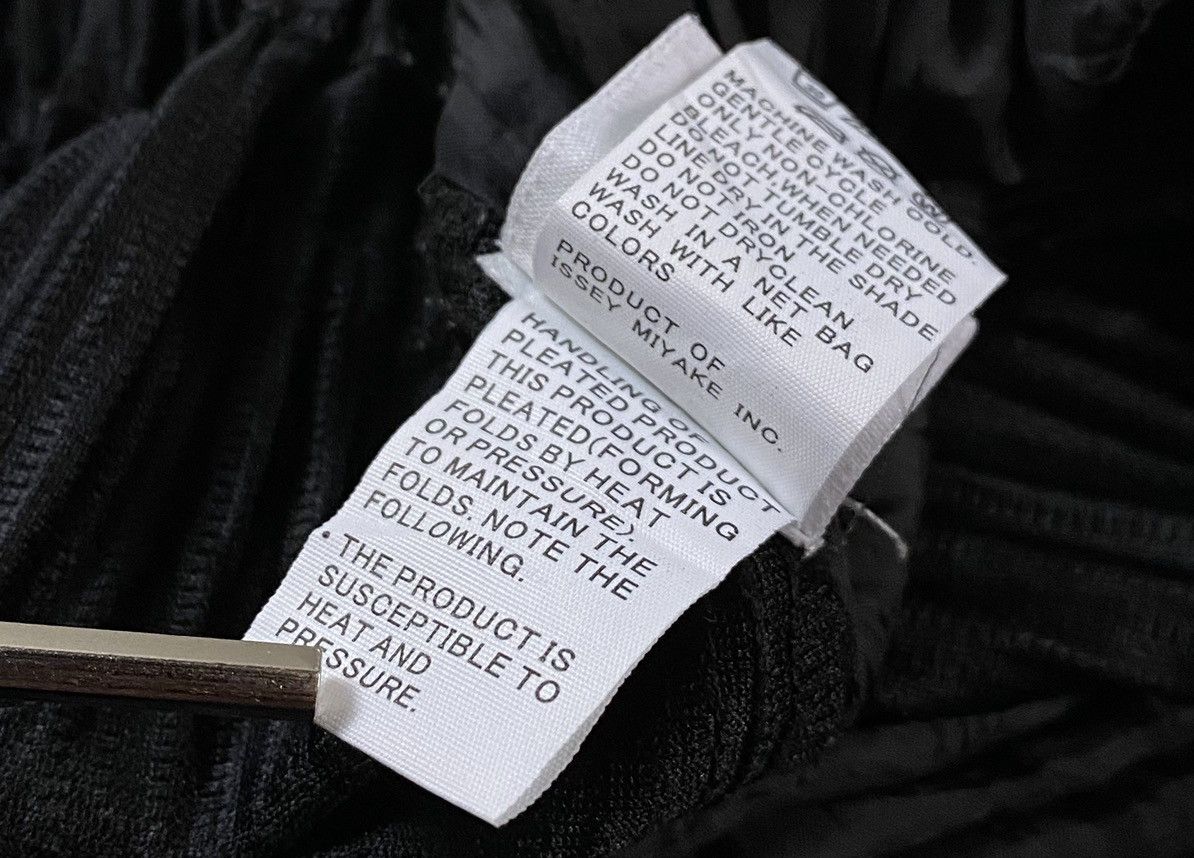 MACHINE WASH COLD.
GENTLE CYCLE
ONLY NON-CHLORINE
BLEACH,WHEN NEEDED
DO NOT TUMBLE DRY
LINE DRY IN THE SHADE
DO NOT IRON
DO NOT DRYCLEAN
WASH IN A NET BAG
WASH WITH LIKE
COLORS
PRODUCT OF
ISSEY MIYAKE INC.
HANDLING OF
PLEATED PRODUCT
THIS PRODUCT IS
PLEATED(FORMING
FOLDS BY HEAT
OR PRESSURE).
TO MAINTAIN THE
FOLDS. NOTE THE
FOLLOWING.
・THE PRODUCT IS
SUSCEPTIBLE TO
HEAT AND
PRESSURE.